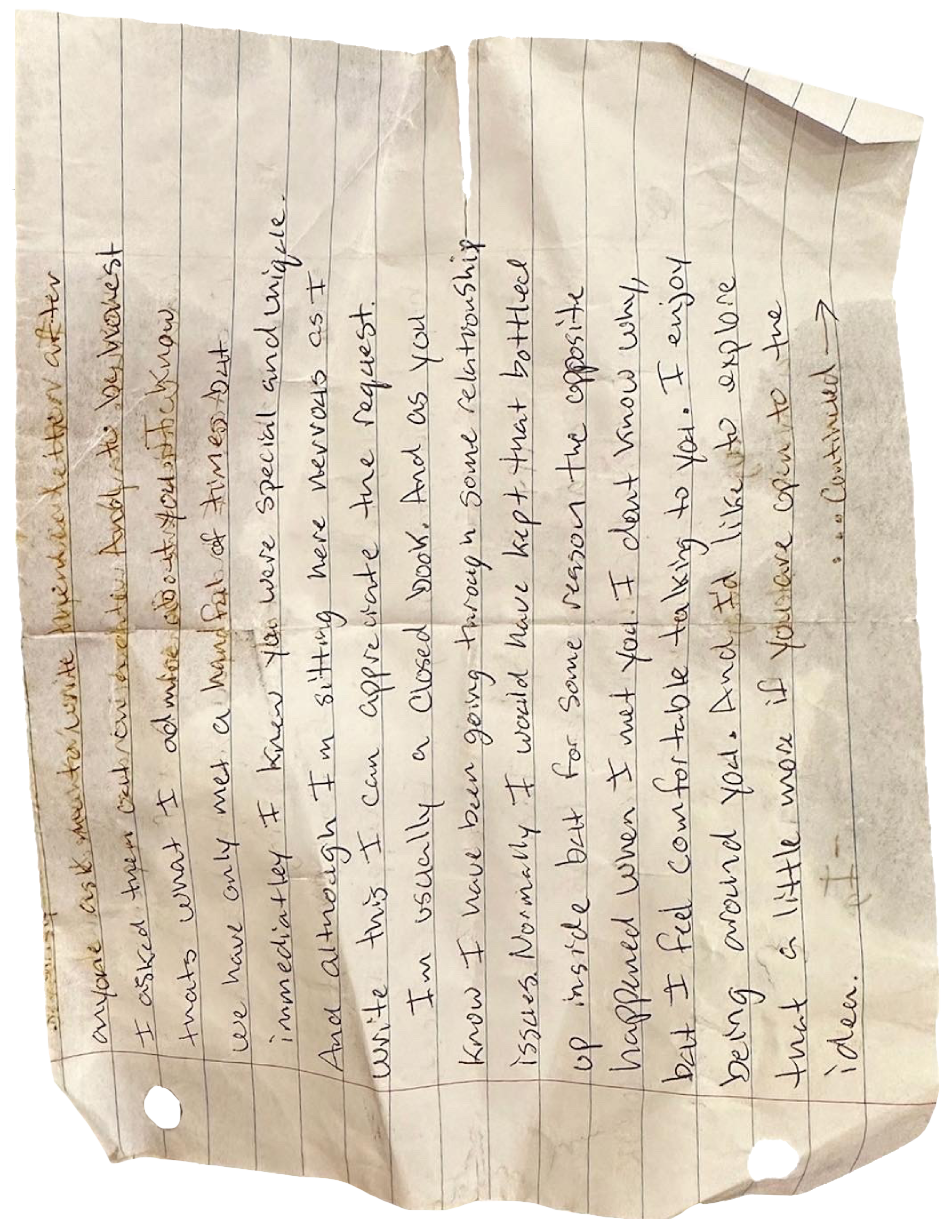 anyone ask me to write them a letter after
I asked them out on a date. And, to be honest
thats what I admire about you. I know
we have only met a handful of times but
immediatley I knew you were special and unique.
And although I'm sitting here nervous as I
write this I can appreciate the request.
I'm usually a closed book. And as you
know I have been going through some relationship
issues. Normally I would have kept that bottled
up inside but for some reason the opposite
happened when I met you. I dont know why,
but I feel comfortable talking to you. I enjoy
being around you. And I'd like to explore
that a little more if you are open to the
idea.
... Continued →